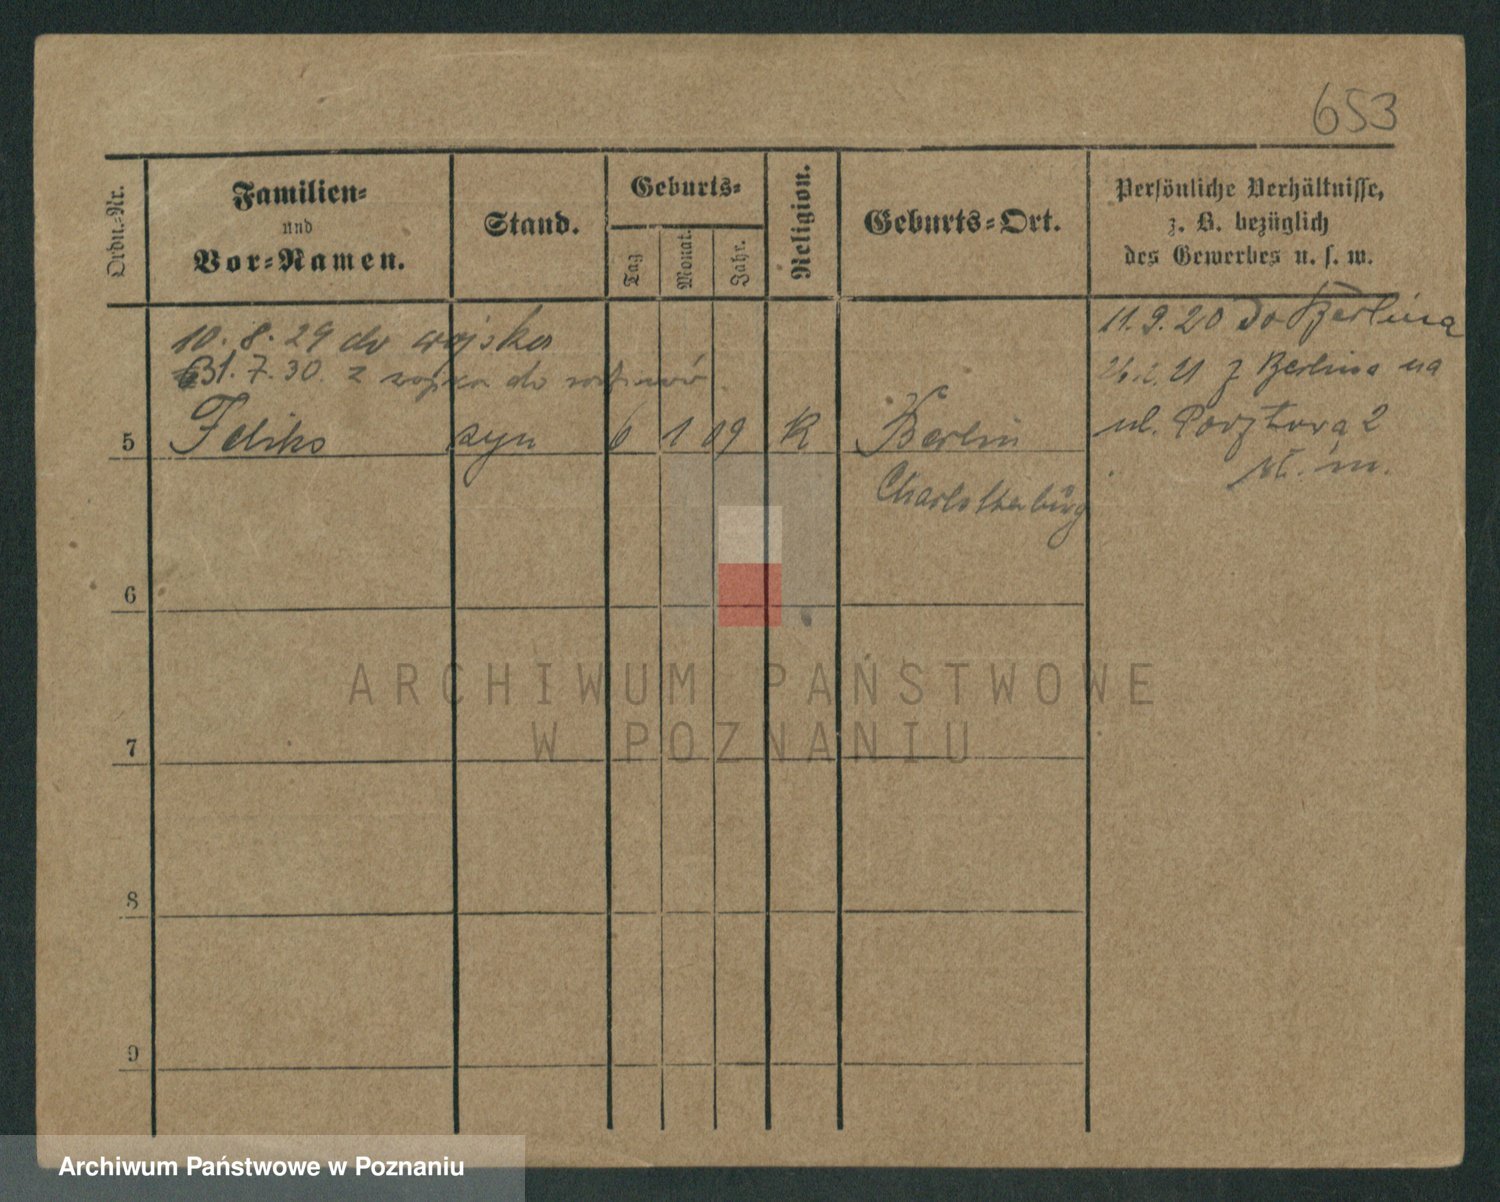 653
Ordn.-Nr.
Familien-
und
Vor-Namen.
Stand.
Geburts-
Tag
Monat.
Jahr.
Religion.
Geburts-Ort.
Persönliche Verhältnisse,
z. B. bezüglich
des Gewerbes u. s. w.
10. 8. 29 do wojska
31. 7. 30. z wojska do rodziców.
11. 9. 20 do Berlina
z Berlina na
5 Feliks syn 6 1 09 K Berlin
Charlottenburg
ul. 2
6
7
8
9
ARCHIWUM PAŃSTWOWE
W POZNANIU
Archiwum Państwowe w Poznaniu